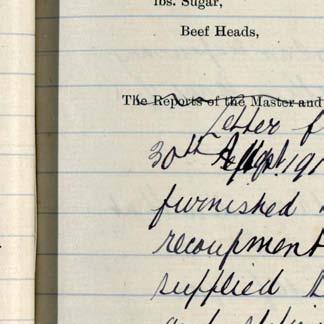 lbs. Sugar,
Beef Heads,
The Reports of the Master and
Letter f
30th Sept. 191
furnished
recoupment
supplied